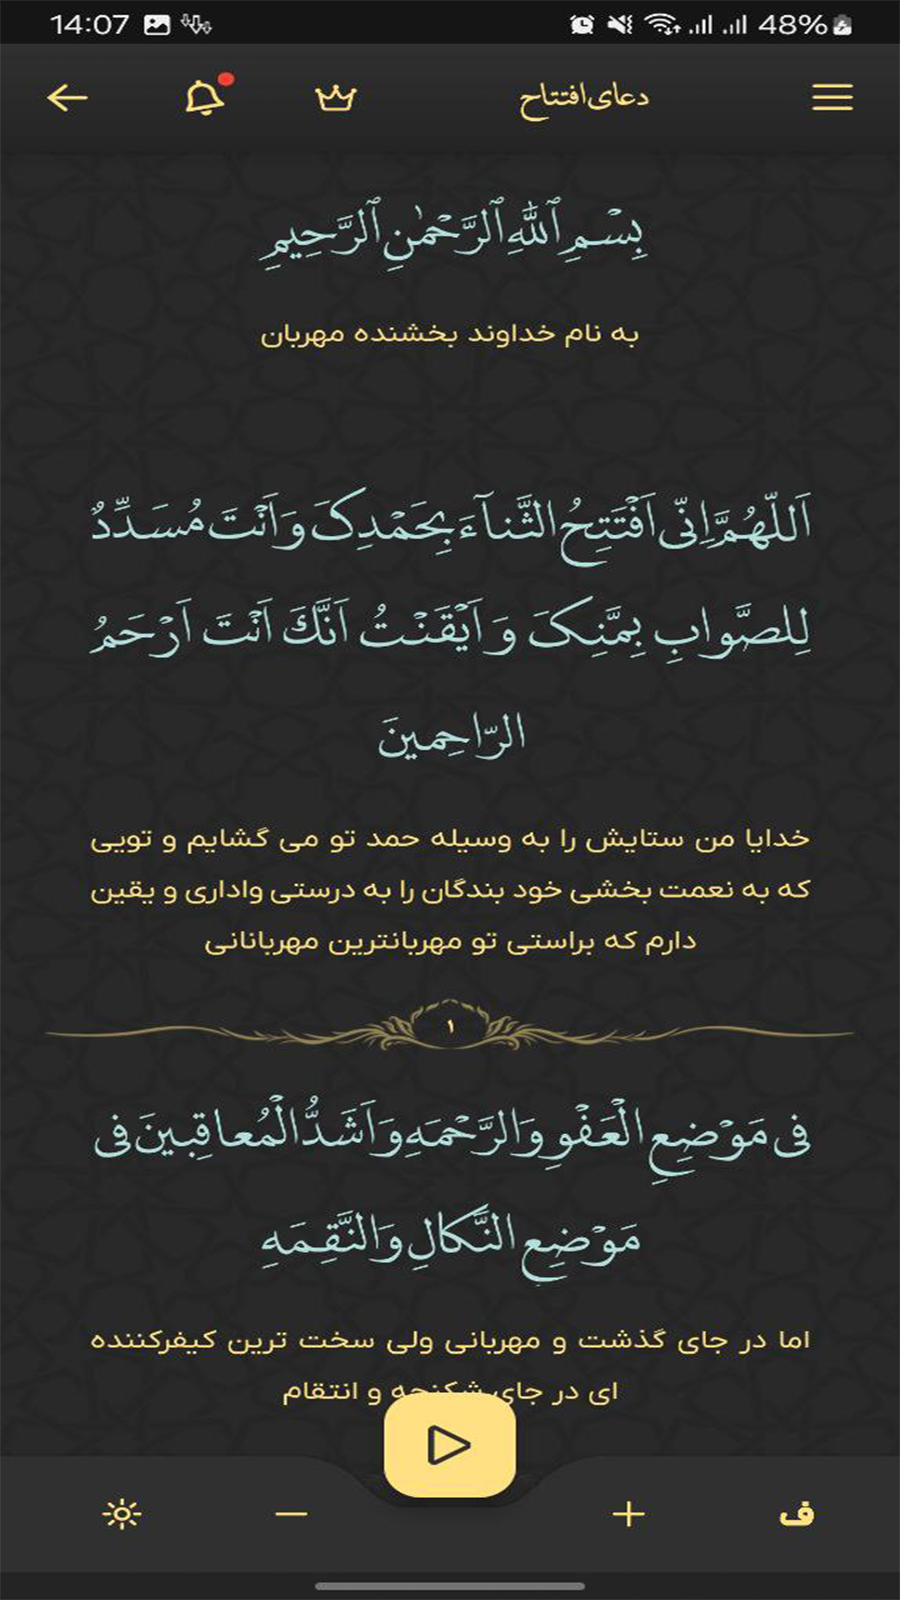 14:07 48%
دعای افتتاح
بِسْمِ ٱللَّهِ ٱلرَّحْمَٰنِ ٱلرَّحِيمِ
به نام خداوند بخشنده مهربان
اَللّهُمَّ اِنّى اَفْتَتِحُ الثَّنآءَ بِحَمْدِکَ وَ اَنْتَ مُسَدِّدٌ
لِلصَّوابِ بِمَّنِکَ وَ اَيْقَنْتُ اَنَّكَ اَنْتَ اَرْحَمُ
الرّاحِمينَ
خدایا من ستایش را به وسیله حمد تو می گشایم و تویی
که به نعمت بخشی خود بندگان را به درستی واداری و یقین
دارم که براستی تو مهربانترین مهربانانی
۱
فى مَوْضِعِ الْعَفْوِ وَالرَّحْمَهِ وَ اَشَدُّ الْمُعاقِبينَ فى
مَوْضِعِ النَّكالِ وَالنَّقِمَهِ
اما در جای گذشت و مهربانی ولی سخت ترین کیفرکننده
ای در جای شکنجه و انتقام
ف